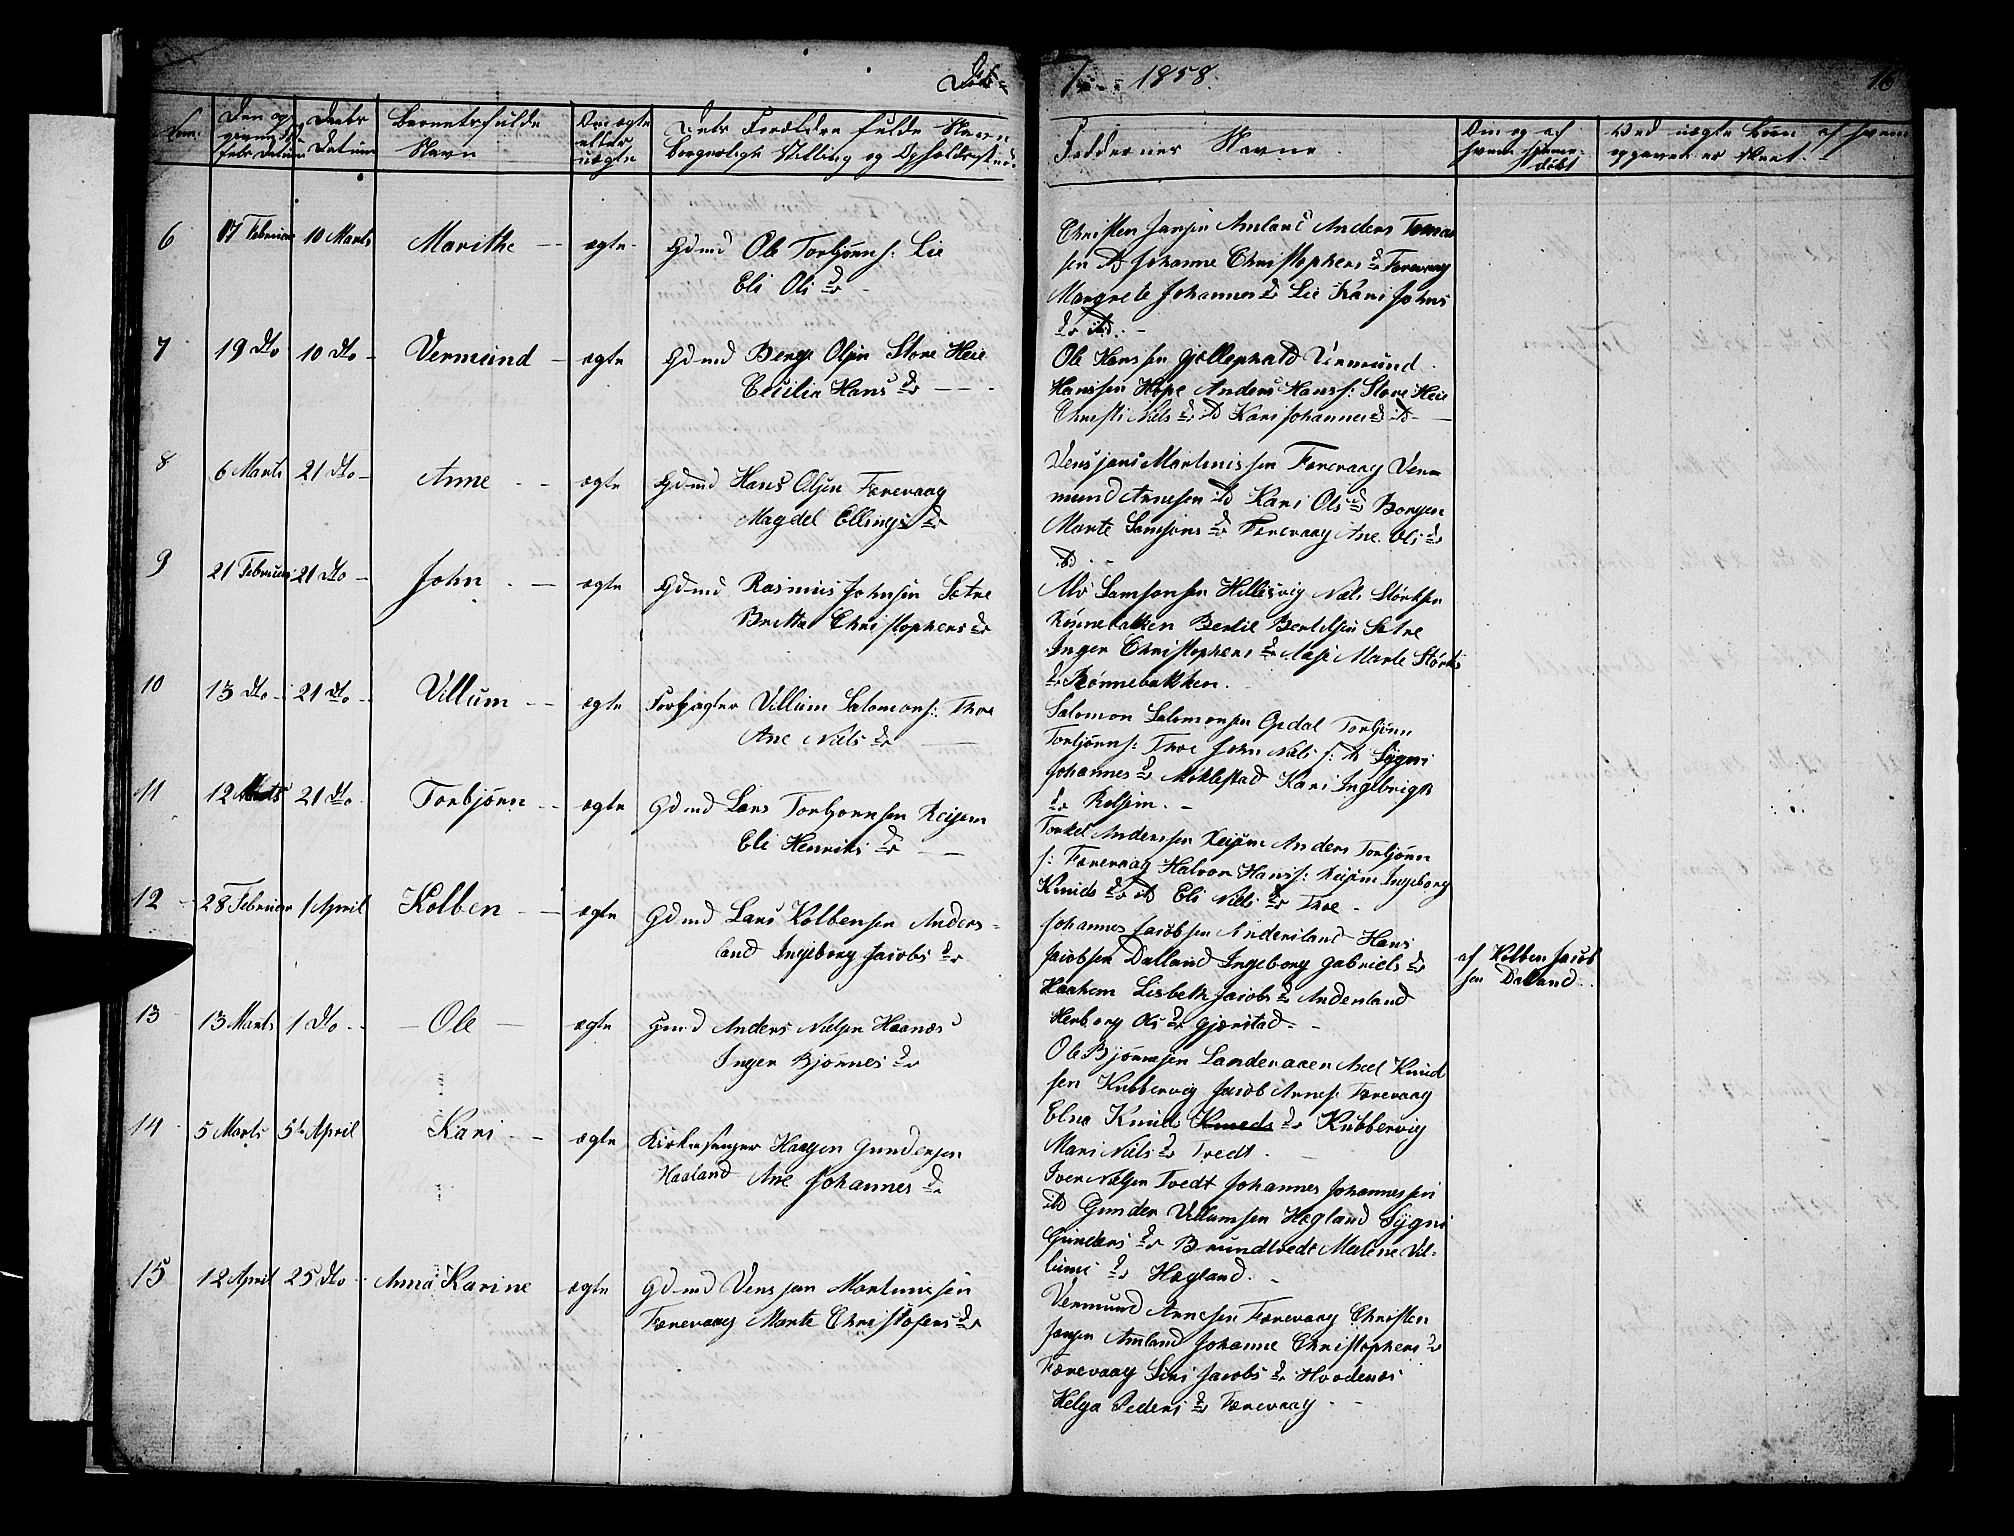 1858.
16
Barnets fulde
Navn
Om ægte
eller
uægte
Faddernes Navne.
6 17 Februar 10 Marts Marithe ægte Gdmd Ole Torbjørns: Lie
Eli Ols dr
Christen Jansen Amland Anders Tomas
sen ibd Johanne Christophers dr Færevaag
Margrete Johannes dr Lie Kari Johns
dr ibd.
7 19 Dto 10 Dto Vermund ægte Gdmd Berge Olsen Store Heie
Cecilia Hans dr
Ole Hanssen Vermund
Hanssen Hope Anders Hanss: Store Heie
Christi Niels dr ibd Kari Johannes dr ibd
8 6 Marts 21 Dto Anne ægte Gdmd Hans Olsen Færevaag
Magdel Ellings dr
Vensjans Martinissen Færevaag Ver-
mund Arnesen ibd Kari Ols dr Borgen
Marte Samsons dr Færevaag Ane Ols dr
ibd
9 21 Februar 21 Dto John ægte Gdmd Rasmus Johnsen Sætre
Britta Christophers dr
Samsonsen Hillesvig Nels Størksen
Rønnebakken Bertil Bertelsen Sætre
Inger Christophers dr Marte Størks
dr Rønnebakken.
10 13 Dto 21 Dto Villum ægte Forpagter Villum Salomons: Thoe
Ane Niels dr
Salomon Salomonsen Opdal Torbjørn
Torbjørns: Thoe John Niels s: ibd Sygni
Johannes dr Møklestad Kari Ingebrigts
dr
11 12 Marts 21 Dto Torbjørn ægte Gdmd Lars Torbjørnsen
Eli Henriks dr
Torkel Anderssen Anders Torbjørn
s: Færevaag Halvor Hanss: Ingeborg
Knuds dr ibd Eli Niels dr Thoe
12 28 Februar 1 April Kolben ægte Gdmd Lars Kolbensen Anders-
land Ingeborg Jacobs dr
Johannes Jacobsen Andersland Hans
Jacobsen Dalland Ingeborg Gabriels dr
Haaheim Lisbeth Jacobs dr Andersland
Herborg Ols dr Gjærstad
af Kolben Jacob
sen Dalland
13 13 Marts 1 Dto Ole ægte Gmd Anders Nielsen Haanæs
Inger Bjørnes dr
Ole Bjørnesen Landeraaen Neel Knud
sen Kubbervig Jacob Arnes: Færevaag
Elna Knuds Knuds dr Kubbervig
Mari Niels dr Tvedt.
14 5 Marts 5te April Kari ægte Kirkesanger Haagen Gundersen
Haaland Ane Johannes dr
Iver Nielsen Tvedt Johannes Johannessen
ibd Gunder Villumsen Høgland Sygni
Gunders dr Brundtvedt Malene Vil-
lums dr Høgland.
15 12 April 25 Dto Anna Karine ægte Gdmd Vensjan Martinissen
Færevaag Marte Christofers dr
Vermund Arnesen Færevaag Christen
Jansen Amland Johanne Christophers dr
Færevaag Siri Jacobs dr Hovdenæs
Helga Peders dr Færevaag